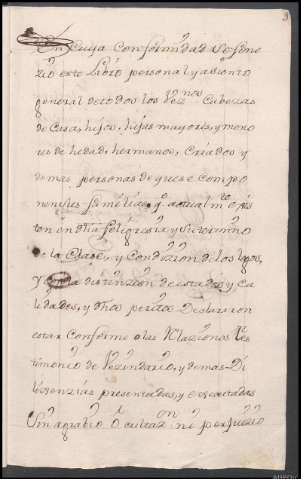 3
En cuya Conformidad se fene
zio este Libro personal y asiento
general de todos los Vez.nos Cabezas
de Casa, hijos, hijas mayores, y meno
res de hedad, hermanos, Criados y
demas personas de que se compo
nen sus familias, y actualm.te exis
ten en dha feligresia y su termino
de la Clase, y Condizion de los legos,
Y con la distinzion de estados, y ca
lidades, y dhos peritos Declararon
estar Conforme a las Relaziones tes
timonio de Vezindario, y demas Di
lixenzias presentadas, y executadas
sin agrabio ocultaz.on ni perjuizio